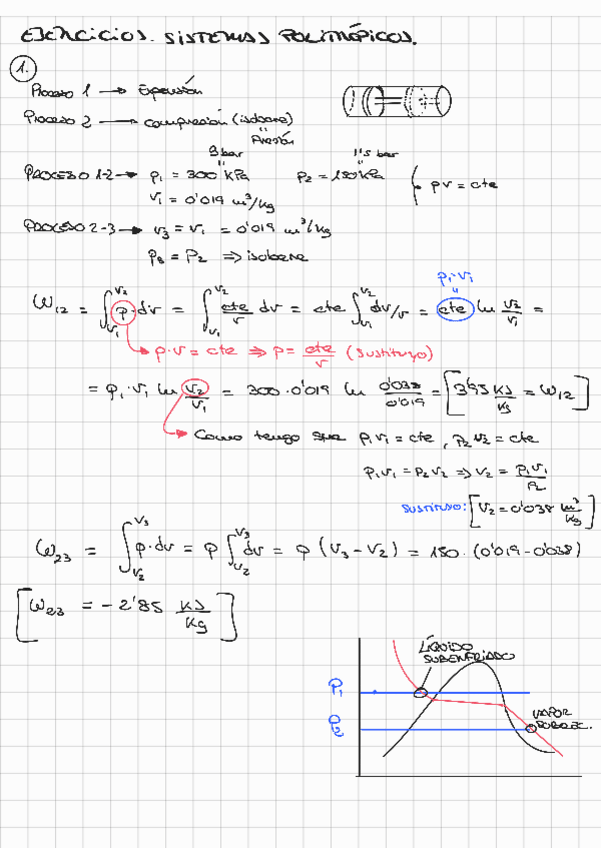 EJERCICIOS. SISTEMAS POLITRÓPICOS.
1.
Proceso 1 → Expansión
Proceso 2 → compresión (isobara)
" Presión
3 bar 1'5 bar
" "
PROCESO 1-2 → p₁ = 300 kPa p₂ = 150 kPa { pv = cte
v₁ = 0'019 m³/kg
PROCESO 2-3 → v₃ = v₁ = 0'019 m³/kg
p₃ = p₂ ⇒ isobara
p₁·v₁
"
W₁₂ = ∫_{v₁}^{v₂} p·dv = ∫_{v₁}^{v₂} cte/v dv = cte ∫_{v₁}^{v₂} dv/v = cte ln v₂/v₁ =
p·v = cte ⇒ p = cte/v (sustituyo)
= p₁·v₁ ln v₂/v₁ = 300·0'019 ln 0'038/0'019 = [3'95 kJ/kg = W₁₂]
Como tengo que p₁v₁ = cte, p₂v₂ = cte
p₁v₁ = p₂v₂ ⇒ v₂ = p₁v₁/p₂
sustituyo: [v₂ = 0'038 m³/kg]
W₂₃ = ∫_{v₂}^{v₃} p·dv = p ∫_{v₂}^{v₃} dv = p (v₃ - v₂) = 150·(0'019 - 0'038)
[W₂₃ = -2'85 kJ/kg]
LÍQUIDO
SUBENFRIADO
P₁
VAPOR
SOBREC.
P₂